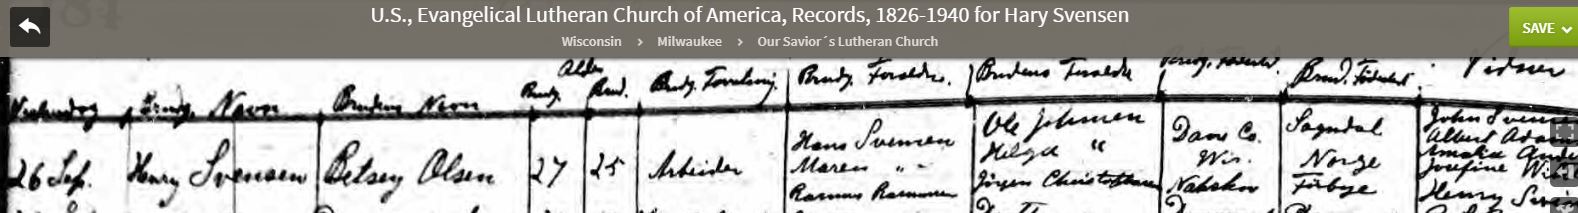 U.S., Evangelical Lutheran Church of America, Records, 1826-1940 for Hary Svensen
Wisconsin > Milwaukee > Our Savior´s Lutheran Church
SAVE
Alder
Brudg. Navn Brudens Navn Brudg. Brud. Brudg. Brudg. Forældre. Brudens Forældre Brudg. Fødested. Brud. Fødested. Vidner
26 Sep. Henry Svensen Betsey Olsen 27 25 Arbeider Hans Svensen Ole Johnsen Dane Co. Sogndal John
Maren " - Helga " Wis. Norge Albert
Rasmus Rasmussen Jörgen Christophersen Nakskov Amalia
Josefine
Henry